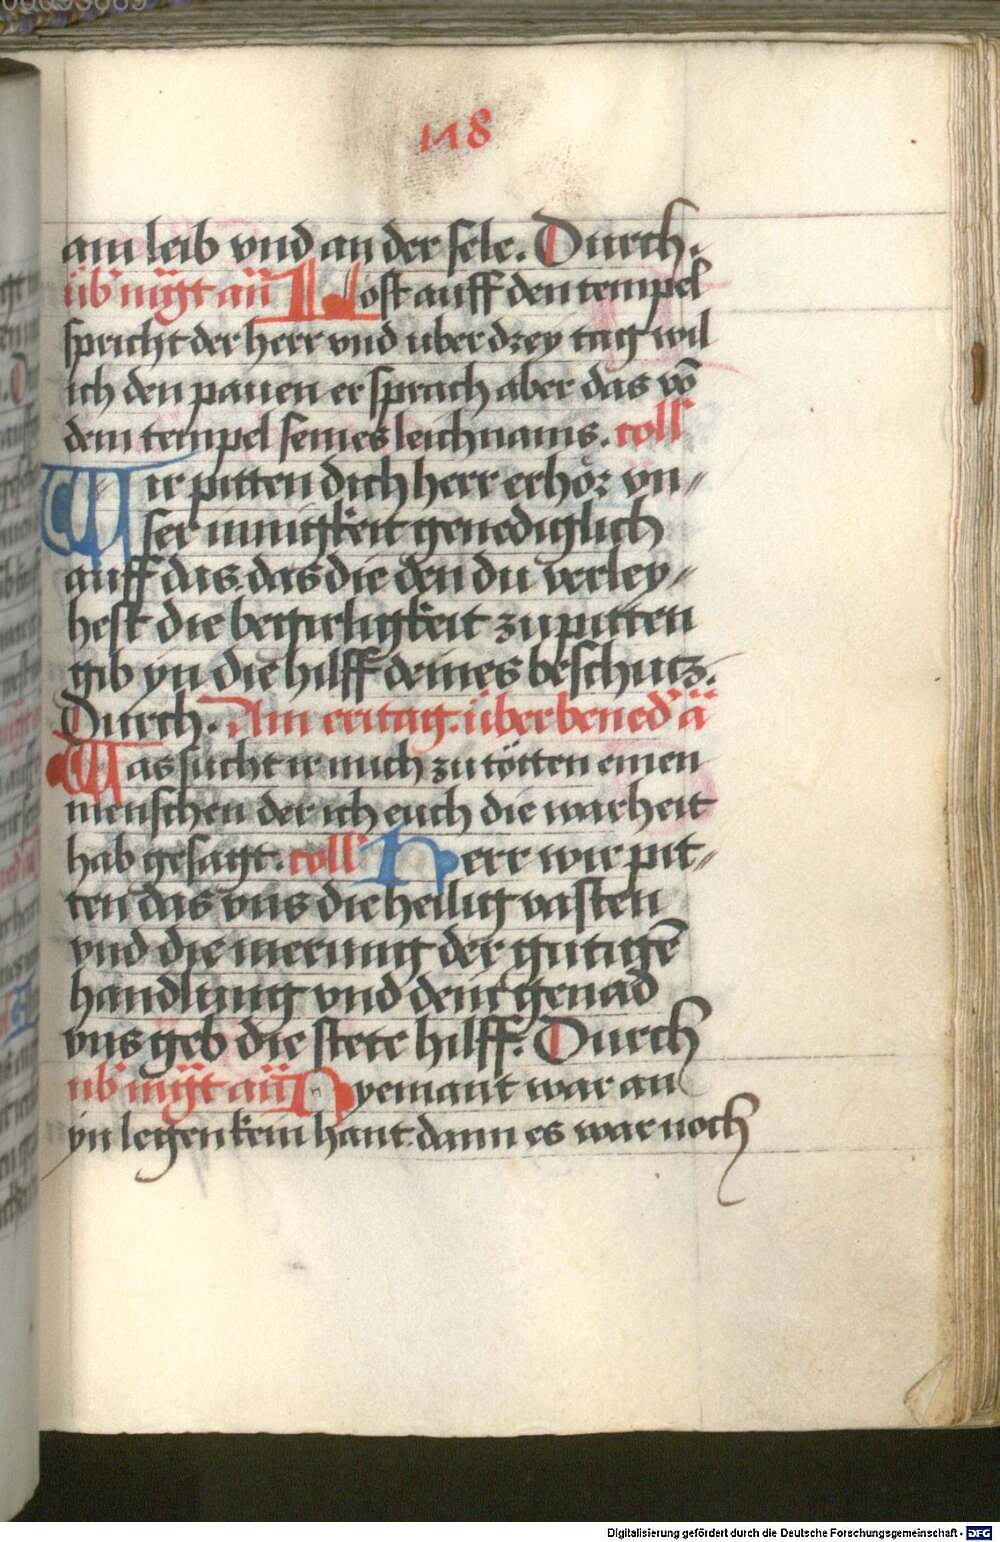 118
am leib vnd an der sele. Durch.
üb' mgt añ Lost auff den tempel
spricht der herr vnd uber drey tag wil
ich den pauen er sprach aber das vō
dem tempel seines leichnams. coll'
Wir pitten dich herr erhör vn〃
ser innigkeit genediglich
auff das. das die den du verley〃
hest die begirligkeit zu pitten
gib yn die hilff deines beschutz.
Durch. Am eritag. über bened' ā
Was sucht ir mich zu tötten einen
menschen der ich euch die warheit
hab gesagt. coll' Herr wir pit〃
ten das vns die heilig vasten
vnd die merung der gutigē
handlung vnd dein genad
vns geb die stete hilff. Durch
üb' mgt añ Nyemant war an
yn legen kein hant. dann es war noch
Digitalisierung gefördert durch die Deutsche Forschungsgemeinschaft - DFG